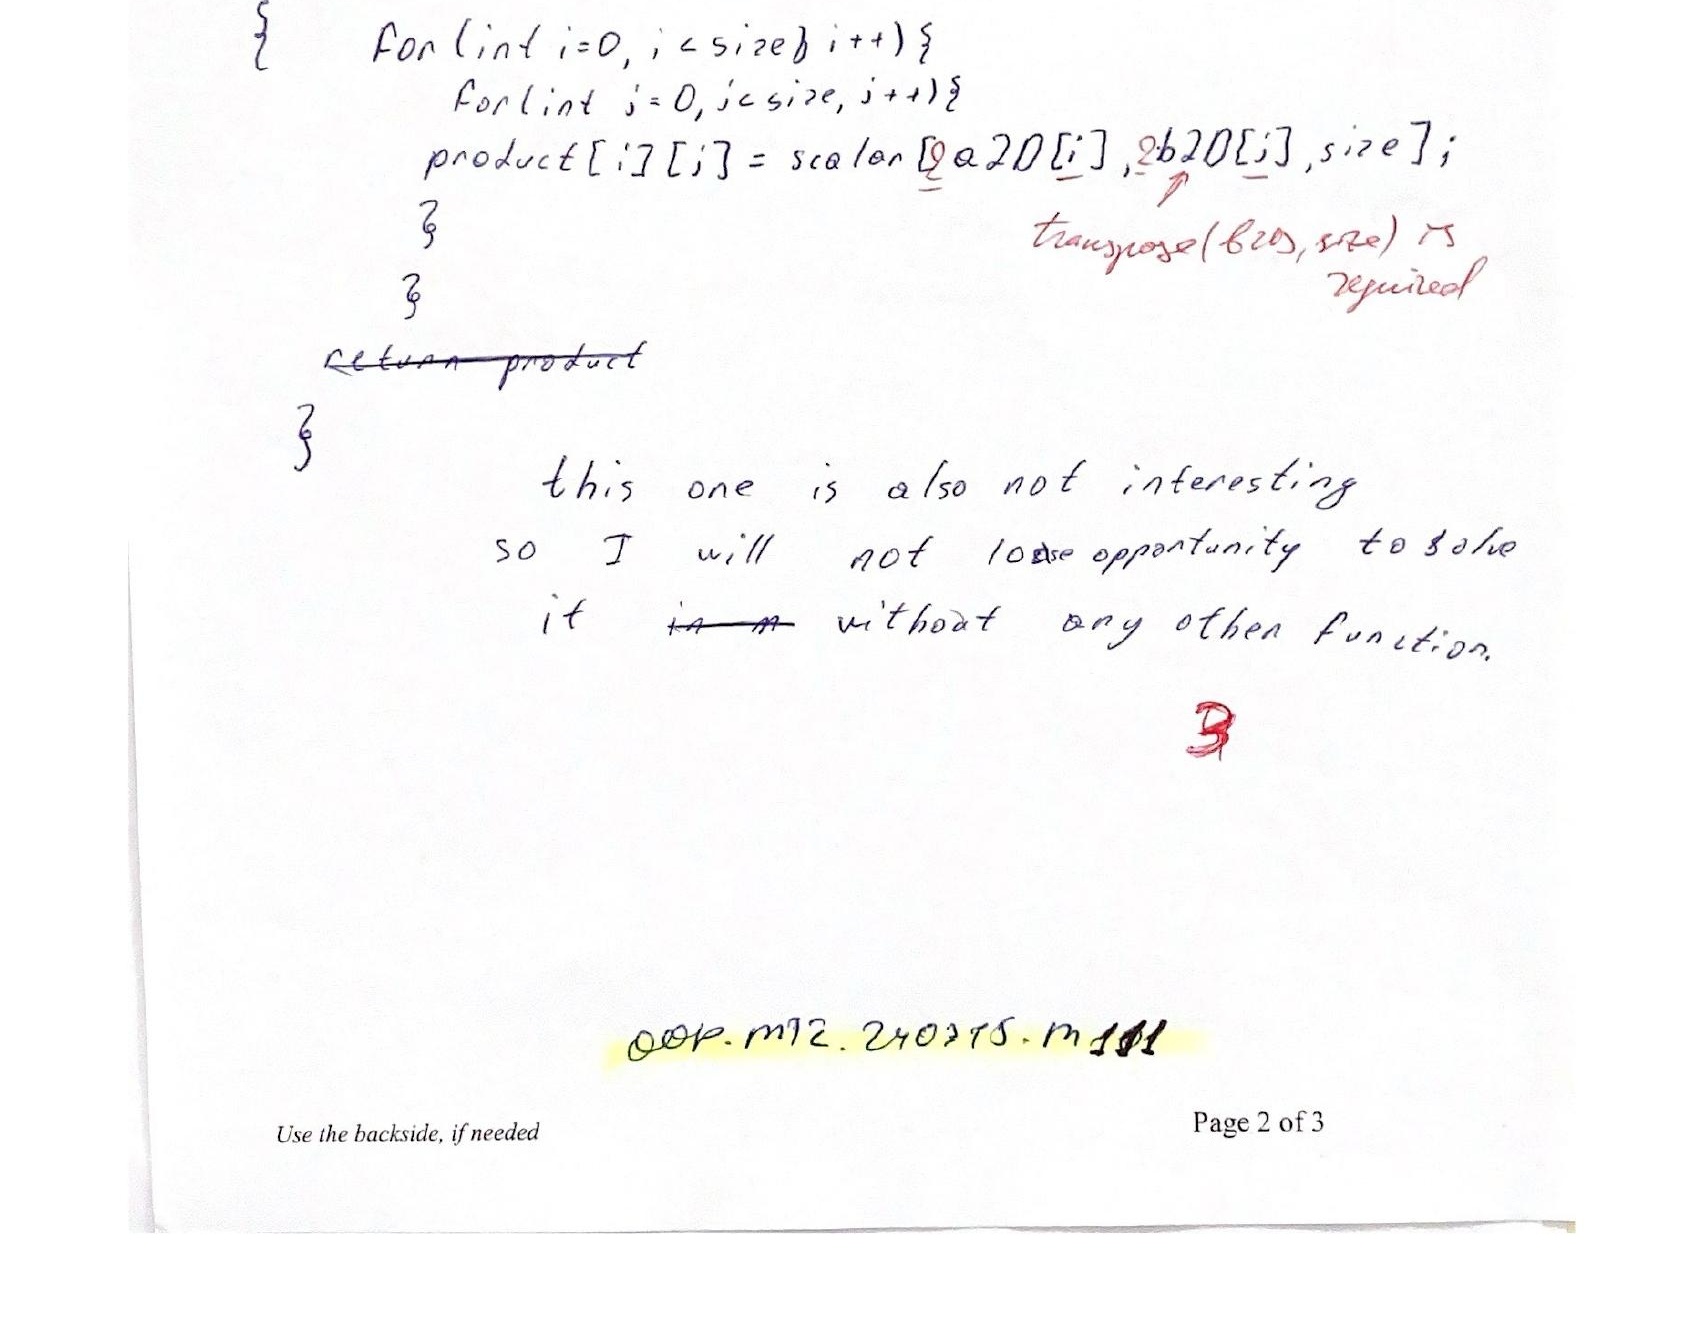 { for (int i=0, i < size; i++) {
for (int j=0, j< size, j++) {
product[i][j] = scalar [&a2D[i], &b2D[j], size];
}
transpose(b2D, size) is
required
}
return product
}
this one is also not interesting
so I will not loose opportunity to solve
it in m without any other function.
3
OOP.MT2.240715.M111
Use the backside, if needed
Page 2 of 3